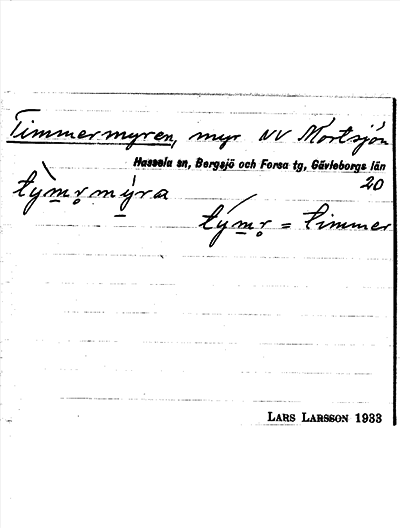 Timmermyren, myr NV Mörtsjön
Hassela sn, Bergsjö och Forsa tg, Gävleborgs län
20
tỳm̲r̥mýra
tým̲r̥ = timmer
LARS LARSSON 1933